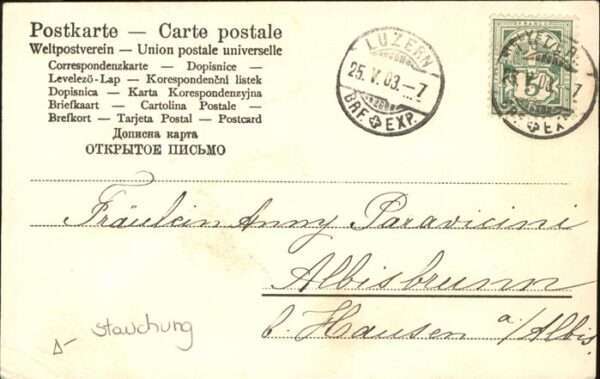 Postkarte — Carte postale
Weltpostverein — Union postale universelle
Correspondenzkarte — Dopisnice —
Levelező-Lap — Korespondenční lístek
Dopisnica — Karta Korespondenzyjna
Briefkaart — Cartolina Postale —
Brefkort — Tarjeta Postal — Postcard
Дописна карта
ОТКРЫТОЕ ПИСЬМО
LUZERN
25. V. 03. — 7
BRF. EXP.
HELVETIA
5
Fräulein Anny Paravicini
Albisbrunn
b. Hausen a/Albis.
Stauchung